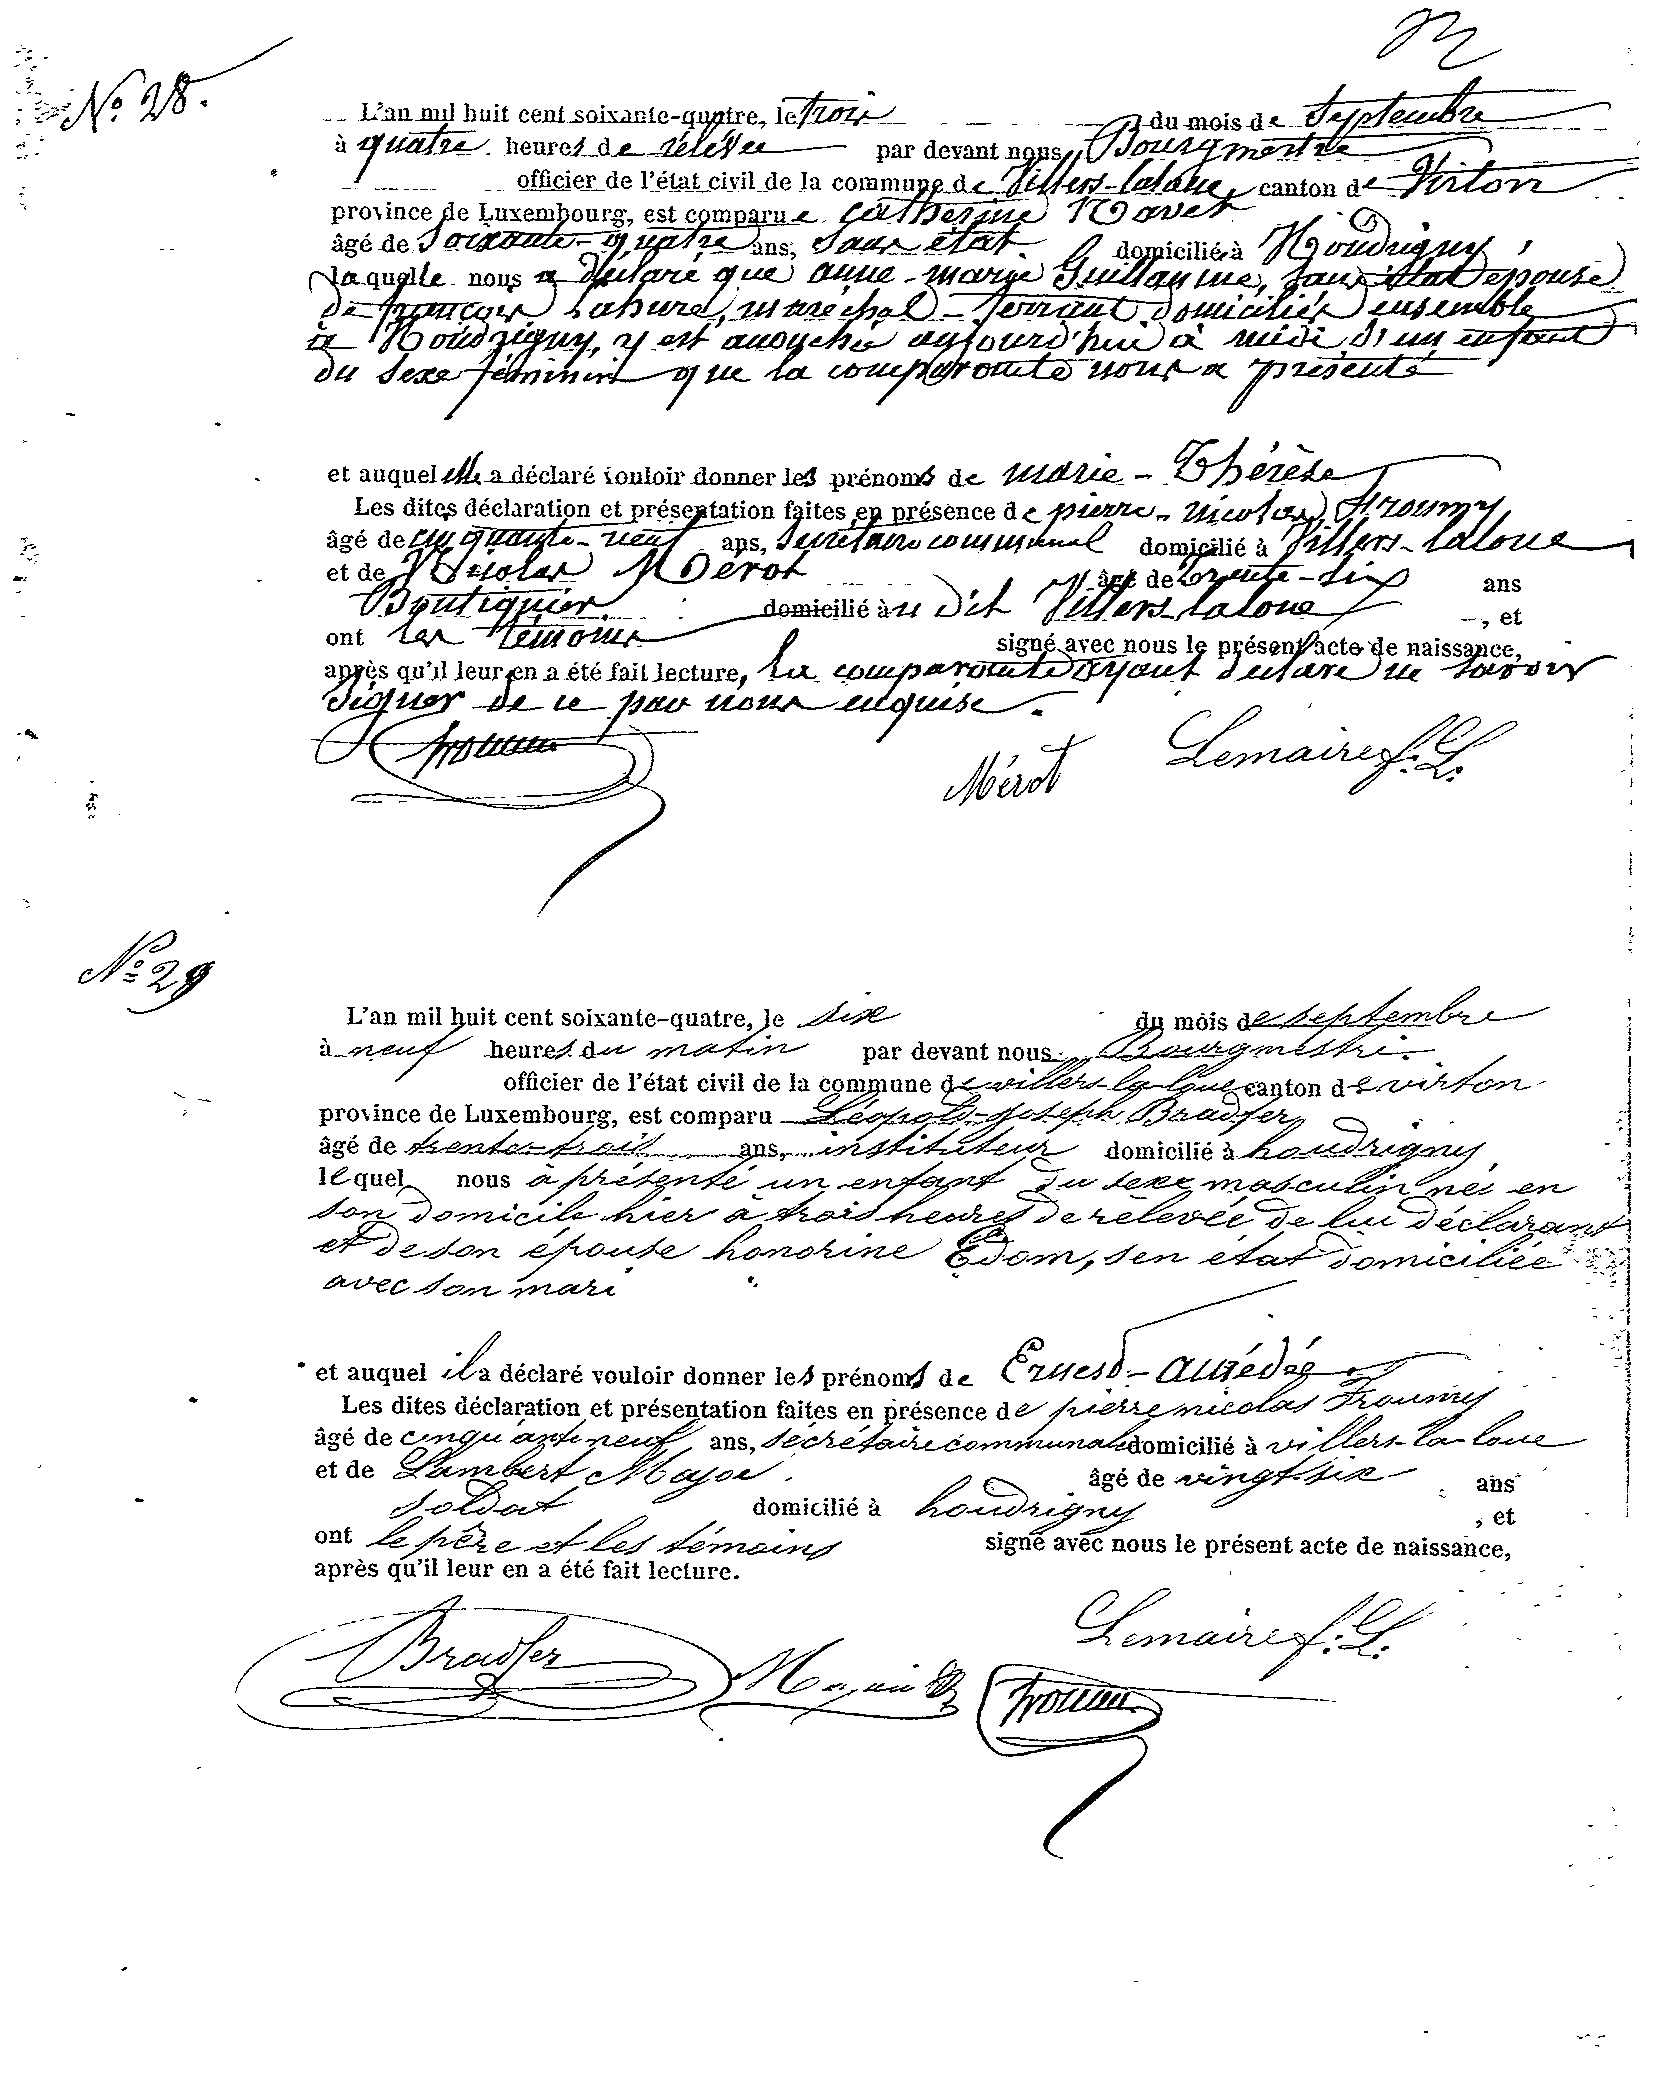 N° 28.
L'an mil huit cent soixante-quatre, le trois du mois de Septembre
à quatre heures de rélévée par devant nous, Bourgmestre
officier de l'état civil de la commune de Villers-laloue, canton de Virton
province de Luxembourg, est comparue Catherine
âgé de Soixante-quatre ans, sans état domiciliée à Houdrigny,
laquelle nous a déclaré que anne-marie Guillaume, sans état épouse
de françois Lahure, maréchal-ferrant domiciliés ensemble
à Houdrigny, y est accouchée aujourd'hui à midi, d'un enfant
du sexe féminin que la comparante nous a présenté
et auquel elle a déclaré vouloir donner les prénoms de marie-Thérèse
Les dites déclaration et présentation faites en présence de pierre-nicolas Froumy
âgé de cinquante-neuf ans, Secrétaire communal domicilié à Villers-laloue
et de Nicolas Mérot âgé de trente-six ans
Boutiquier domicilié à u dit Villers-laloue, et
ont les témoins signé avec nous le présent acte de naissance,
après qu'il leur en a été fait lecture, la comparante ayant déclaré ne savoir
signer de ce par nous enquise.
Froumy Mérot Lemaire f. L.
N° 29
L'an mil huit cent soixante-quatre, le six du mois de septembre
à neuf heures du matin par devant nous, Bourgmestre.
officier de l'état civil de la commune de villers-la-loue canton de virton
province de Luxembourg, est comparu Léopold-joseph Bradfer
âgé de trente-trois ans, instituteur domicilié à houdrigny,
lequel nous à présenté un enfant du sexe masculin né en
son domicile hier à trois heures de relevée de lui déclarant
et de son épouse honorine Edom, sen état domiciliée
avec son mari
et auquel il a déclaré vouloir donner les prénoms de Ernest-amédée
Les dites déclaration et présentation faites en présence de pierre nicolas Froumy
âgé de cinquante neuf ans, secrétaire communale domicilié à villers-la-loue
et de Lambert âgé de vingt-six ans
soldat domicilié à houdrigny, et
ont le père et les témoins signé avec nous le présent acte de naissance,
après qu'il leur en a été fait lecture.
Lemaire f. L.
Bradfer Froumy